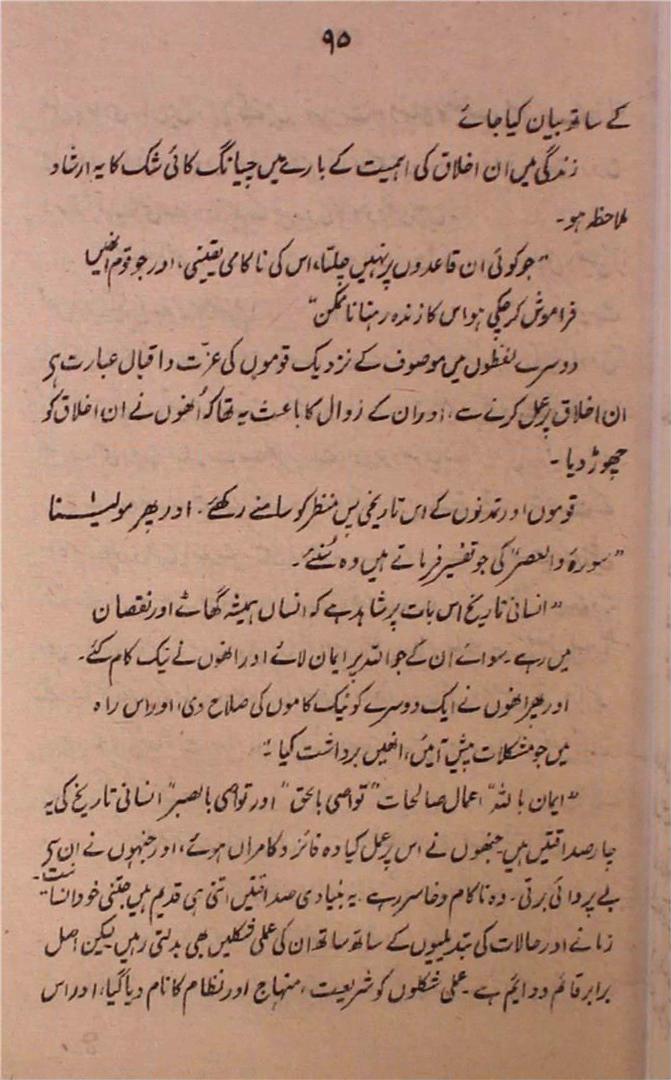 ۹۵
کے ساتھ بیان کیا جائے
زندگی میں ان اخلاق کی اہمیت کے بارے میں چیانگ کائی شک کا یہ ارشاد
ملاحظہ ہو۔
"جو کوئی ان قاعدوں پر نہیں چلتا، اس کی ناکامی یقینی، اور جو قوم انھیں
فراموش کر چکی ہو اس کا زندہ رہنا ناممکن"
دوسرے لفظوں میں موصوف کے نزدیک قوموں کی عزّت و اقبال عبارت ہی
ان اخلاق پر عمل کرنے سے، اور ان کے زوال کا باعث یہ تھا کہ اُنھوں نے ان اخلاق کو
چھوڑ دیا۔
قوموں اور تمدنوں کے اس تاریخی پس منظر کو سامنے رکھئے۔ اور پھر مولیٰنا
"سورۂ والعصر" کی جو تفسیر فرماتے ہیں وہ سُنئے۔
"انسانی تاریخ اس بات پر شاہد ہے کہ انسان ہمیشہ گھاٹے اور نقصان
میں رہے۔ سوائے ان کے جو اللہ پر ایمان لائے اور انھوں نے نیک کام کئے۔
اور پھر انھوں نے ایک دوسرے کو نیک کاموں کی صلاح دی، اور اس راہ
میں جو مشکلات پیش آئیں، انھیں برداشت کیا"۔
"ایمان باللہ" اعمال صالحات "تواصی بالحق" اور تواصی بالصبر" انسانی تاریخ کی یہ
چار صداقتیں ہیں جنھوں نے اس پر عمل کیا وہ فائز و کامراں ہوئے، اور جنہوں نے ان سی
بے پروائی برتی۔ وہ ناکام و خاسر رہے۔ یہ بنیادی صداقتیں اتنی ہی قدیم ہیں جتنی خود انسانیت۔
زمانے اور حالات کی تبدیلیوں کے ساتھ ساتھ ان کی عملی شکلیں بھی بدلتی رہیں لیکن اصل
برابر قائم و دایم ہے۔ عملی شکلوں کو شریعت، منہاج اور نظام کا نام دیا گیا، اور اس